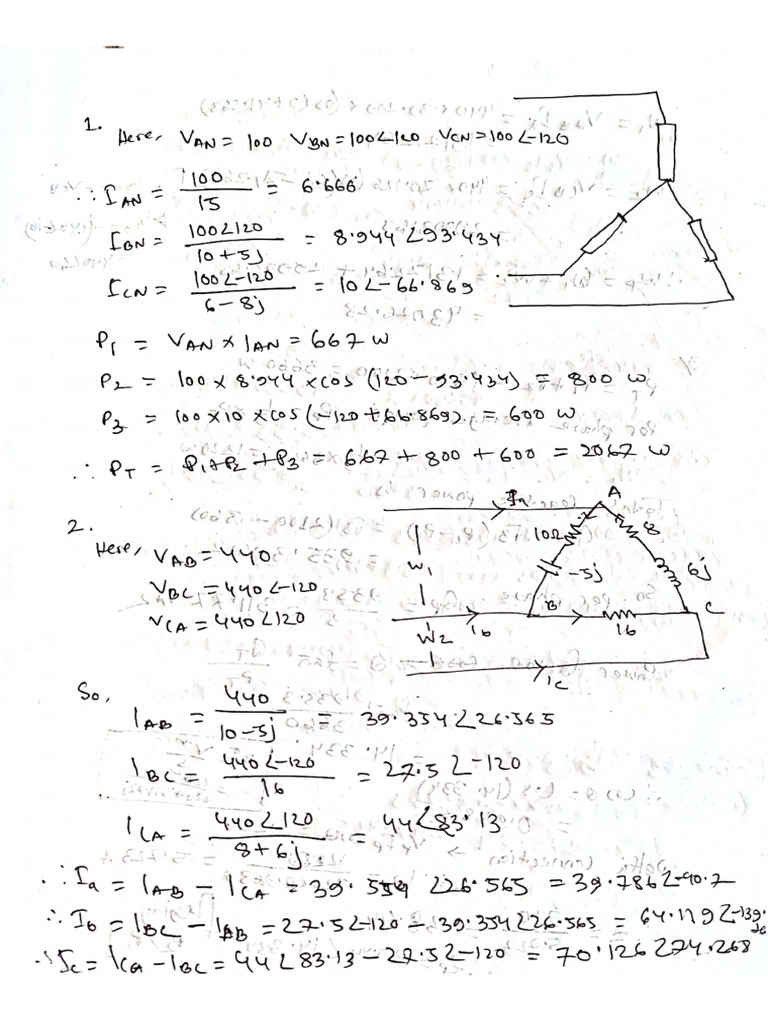 1.
Here, VAN = 100 VBN = 100∠120 VCN = 100∠-120
∴ IAN = 100/15 = 6.666
IBN = 100∠120/10+5j = 8.944 ∠93.434
ICN = 100∠-120/6-8j = 10∠-66.869
P1 = VAN × IAN = 667 W
P2 = 100 × 8.944 × cos (120 - 93.434) = 800 W
P3 = 100 × 10 × cos (-120 + 66.869) = 600 W
∴ PT = P1+P2+P3 = 667 + 800 + 600 = 2067 W
2.
Here, VAB = 440
VBC = 440∠-120
VCA = 440∠120
Ia
A
10Ω
8
W1
-5j
6j
B
C
Ib
16
W2
IC
So,
IAB = 440/10-5j = 39.354∠26.565
IBC = 440∠-120/16 = 27.5∠-120
ICA = 440∠120/8+6j = 44∠83.13
∴ Ia = IAB - ICA = 39.354 ∠26.565 = 39.786∠-40.7
∴ Ib = IBC - IAB = 27.5∠-120 - 39.354∠26.565 = 64.179∠-139.
∴ Ic = ICA - IBC = 44∠83.13 - 27.5∠-120 = 70.126∠74.268